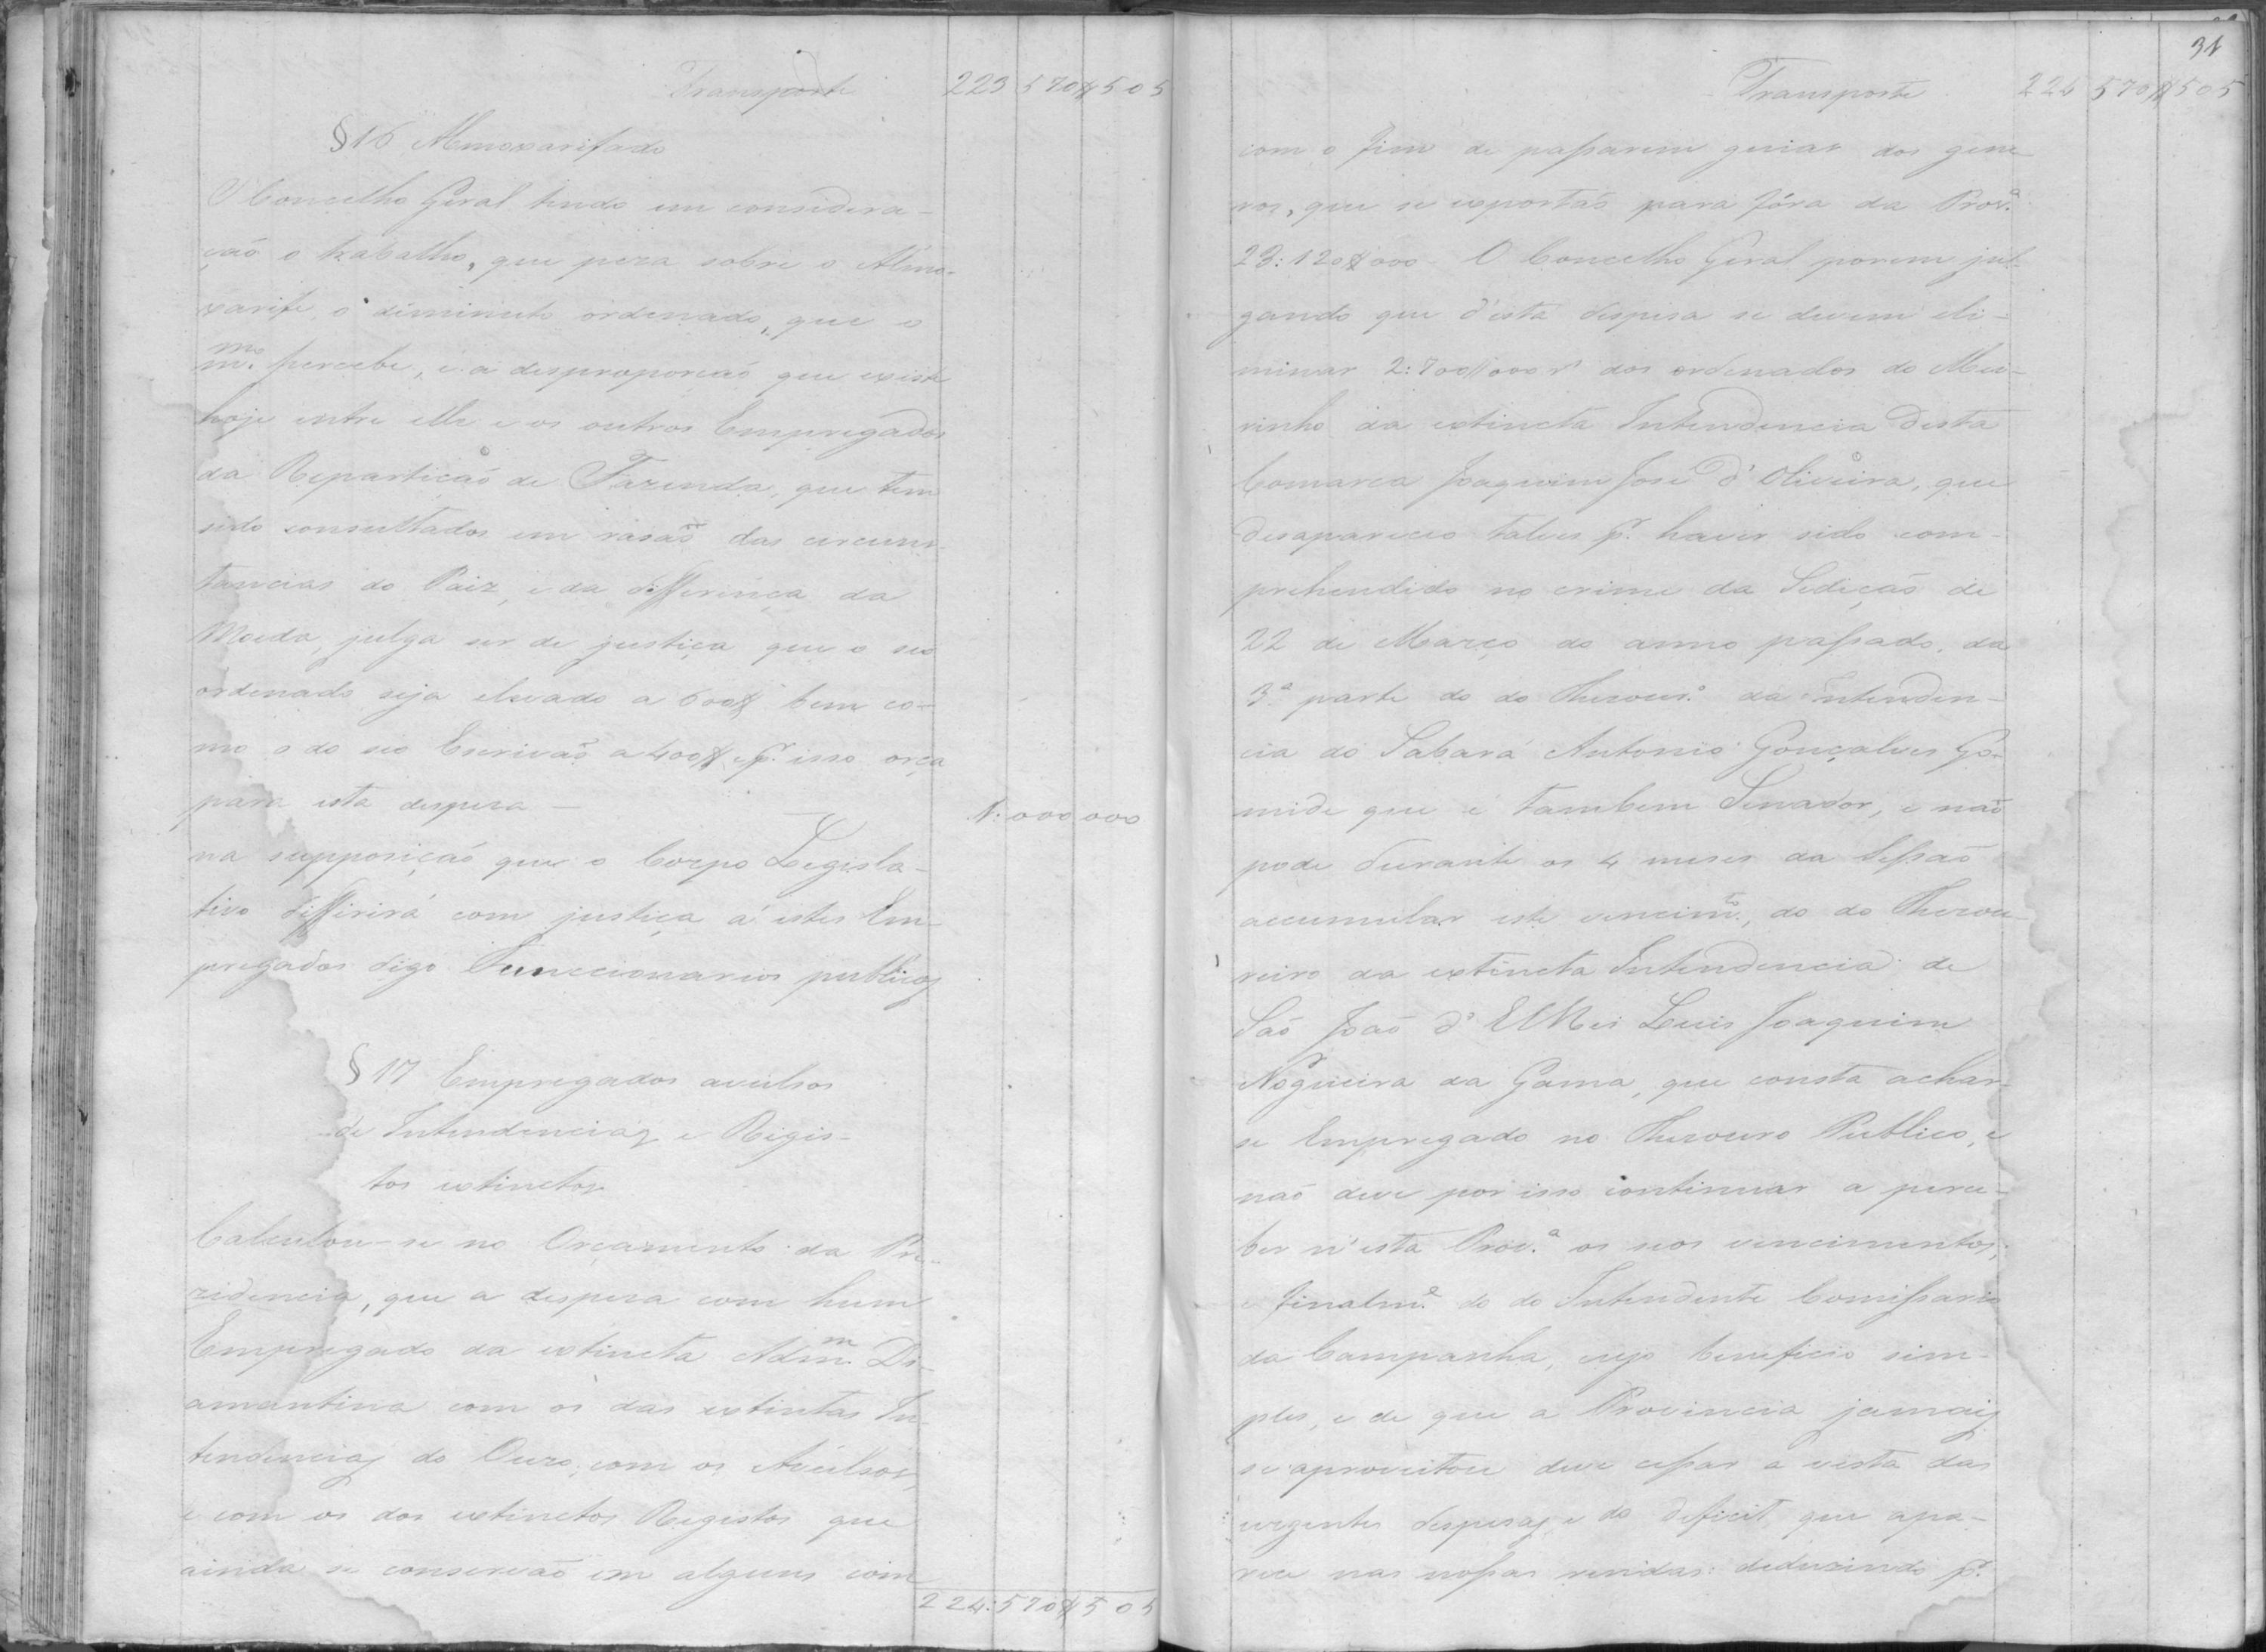 Transporte 223 570$505
§ 16 Almoxarifado
O Concelho Geral tendo em considera-
ção o trabalho, que peza sobre o Almo-
xarife, o diminuto ordenado, que o
m.mo percebe, e a desproporção que existe
hoje entre elle e os outros Empregados
da Repartição de Fazenda, que tem
sido consultados em rasão das circuns-
tancias do Paiz, e da differença da
Moeda, julga ser de justiça que o seo
ordenado seja elevado a 600$ bem co-
mo o do seo Escrivão a 400$ e p.r isso orça
para esta despeza — 1:000 000
na supposição que o Corpo Legisla-
tivo differirá com justiça á estes Em-
pregados digo Funccionarios publicos
§ 17 Empregados avulsos
de Intendencias e Regis-
tos extinctos
Calculou-se no Orçamento da Pre-
zidencia, que a despeza com hum
Empregado da extincta Adm.m Di-
amantina com os das extintas In-
tendencias do Ouro, com os Avulsos,
e com os dos extinctos Registos que
ainda se conservão em alguns com
224:570$505
31
Transporte 224 570$505
com o fim de passarem guias dos gene-
ros, que se exportão para fóra da Prov.a
23:120$000. O Concelho Geral porem jul-
gando que d'esta despesa se devem eli-
minar 2:700$000 r.s dos ordenados do Mei-
rinho da extincta Intendencia desta
Comarca Joaquim José d'Oliveira, que
desapareceo talves p.r haver sido com-
prehendido no crime da Sedição de
22 de Março do anno passado, da
3.a parte do do Thezour.o da Intenden-
cia do Sabará Antonio Gonçalves Go-
mide que é tambem Senador, e não
pode durante os 4 meses da Sessão
accumular este vencim.to, do do Thezou-
reiro da extincta Intendencia de
São João d'ElRei Luis Joaquim
Nogueira da Gama, que consta achar-
se Empregado no Thezouro Publico, e
não deve por isso continuar a perce-
ber n'esta Prov.a os seos vencimentos,
e finalm.e do do Intendente Comissario
da Campanha, cujo beneficio sim-
ples, e de que a Provincia jamais
se aproveitou deve cessar a vista das
urgentes despesas, e do deficit que apa-
rece nas nossas rendas: deduzindo p.r